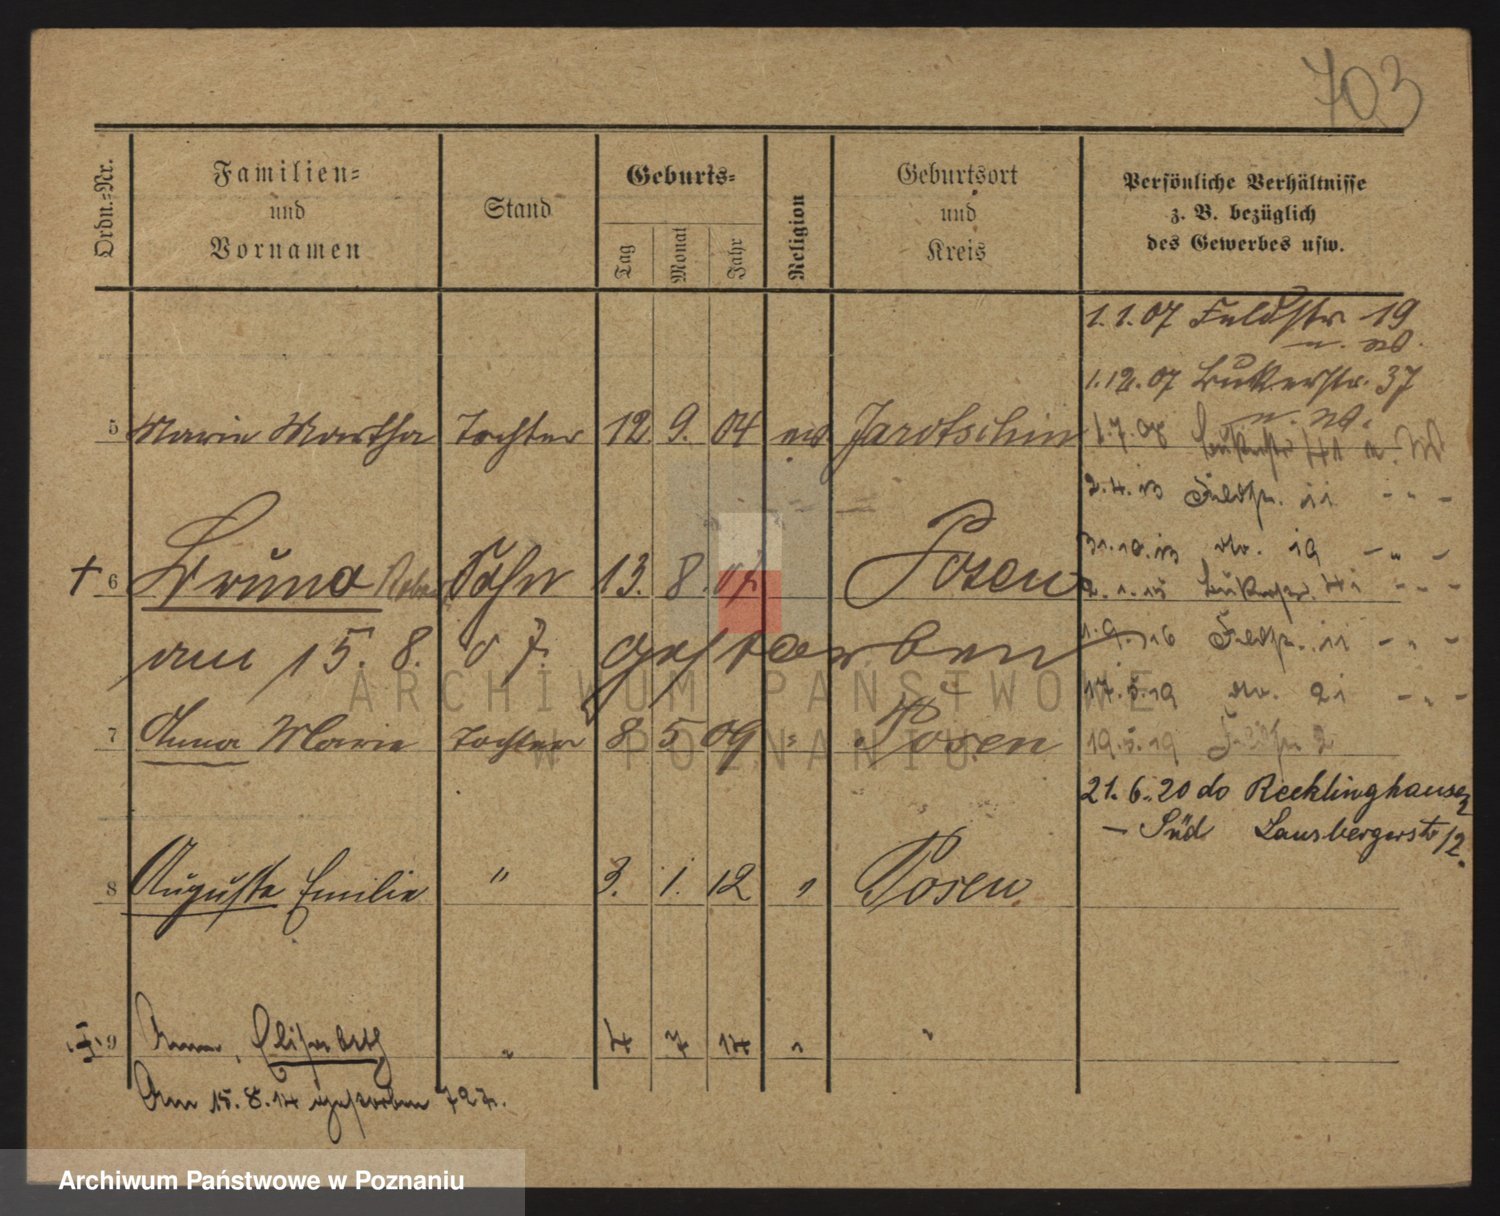 703
Ordn.-Nr.
Familien-
und
Vornamen
Stand
Geburts-
Tag
Monat
Jahr
Religion
Geburtsort
und
Kreis
Persönliche Verhältnisse
z. B. bezüglich
des Gewerbes usw.
1.1.07 Feldstr 19
1.12.07 Bukerstr. 37
5 Marie Martha Tochter 12 9. 04 ev Jarotschin
1.7.08 Bukerstr 41
2.4.13 Feldstr. 11
31.10.13 19
† 6 Bruno Sohn 13. 8. 07 Posen
2.1.15 Bukerstr. 41
am 15. 8. 07. gestorben
1.9.16 Feldstr. 11
17.5.19 21
7 Anna Marie Tochter 8 5 09 " Posen
19.5.19 Feldstr 2
21.6.20 do Recklinghausen
– Süd Lansbergerstr 12.
8 Auguste Emilie " 3. 1. 12 " Posen
9 Anna, Elisabeth " 4 7 14 " "
Am 15.8.14 gestorben
ARCHIWUM PAŃSTWOWE
W POZNANIU
Archiwum Państwowe w Poznaniu